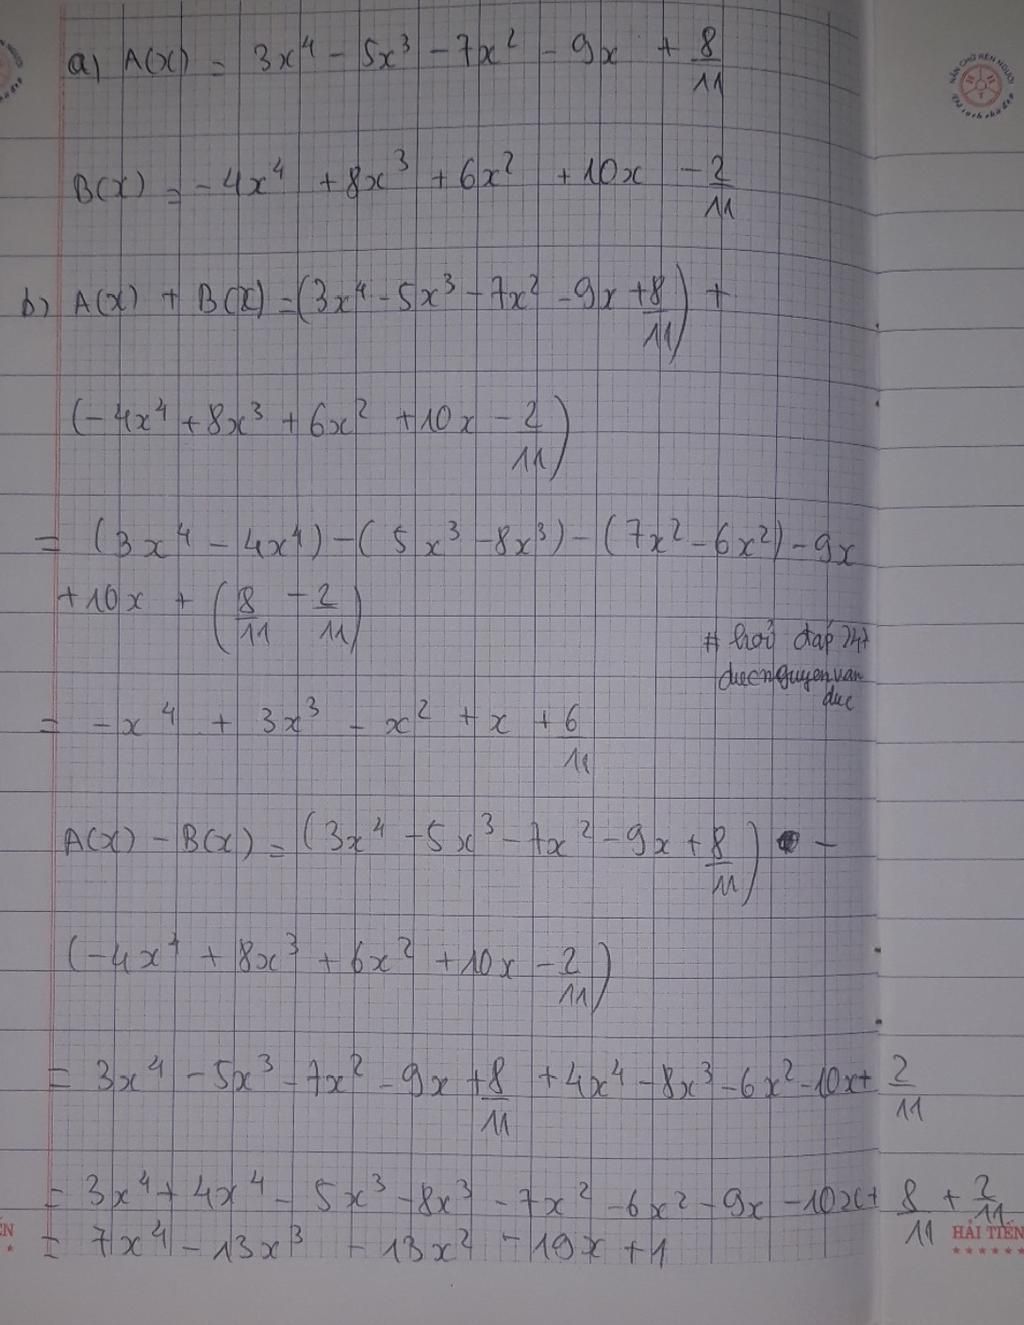 a) A(x) = 3x⁴ - 5x³ - 7x² - 9x + 8/11
B(x) = -4x⁴ + 8x³ + 6x² + 10x - 2/11
b) A(x) + B(x) = (3x⁴ - 5x³ - 7x² - 9x + 8/11) +
(-4x⁴ + 8x³ + 6x² + 10x - 2/11)
= (3x⁴ - 4x⁴) - (5x³ - 8x³) - (7x² - 6x²) - 9x
+ 10x + (8/11 - 2/11)
# hỏi đáp 247
ducnguyenvan
duc
= -x⁴ + 3x³ - x² + x + 6/11
A(x) - B(x) = (3x⁴ - 5x³ - 7x² - 9x + 8/11) -
(-4x⁴ + 8x³ + 6x² + 10x - 2/11)
= 3x⁴ - 5x³ - 7x² - 9x + 8/11 + 4x⁴ - 8x³ - 6x² - 10x + 2/11
= 3x⁴ + 4x⁴ - 5x³ - 8x³ - 7x² - 6x² - 9x - 10x + 8/11 + 2/11
= 7x⁴ - 13x³ - 13x² - 19x + 1
HẢI TIẾN